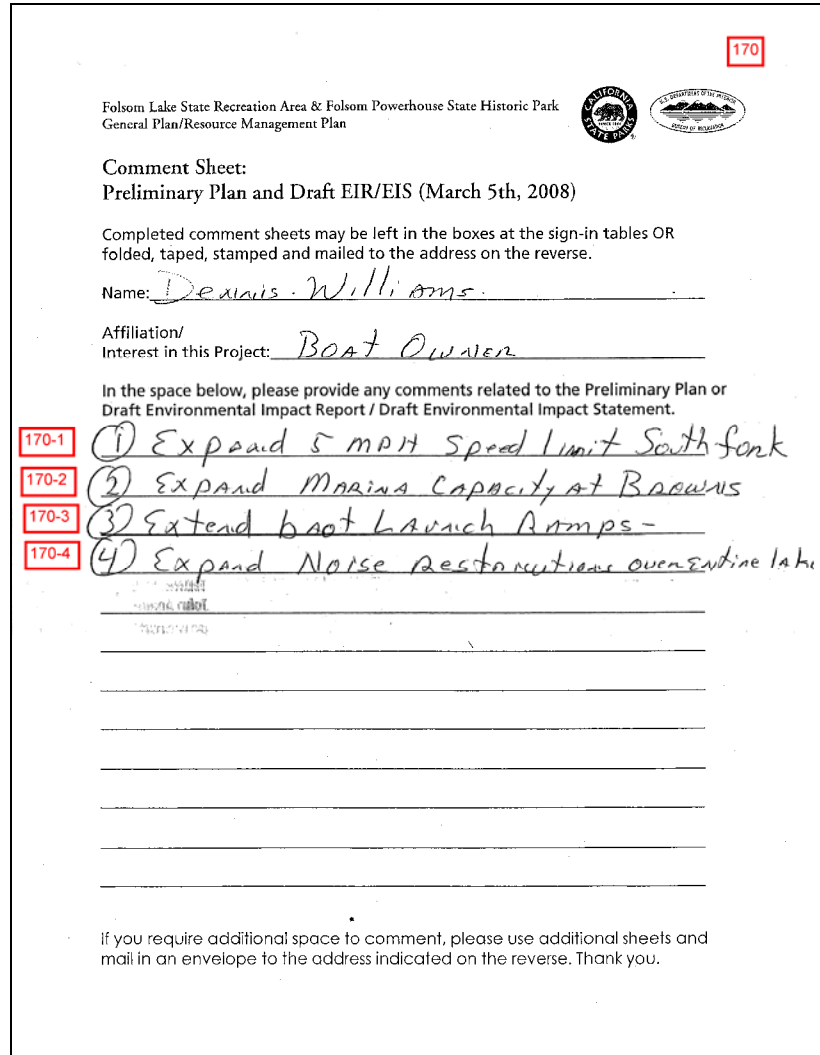 170
Folsom Lake State Recreation Area & Folsom Powerhouse State Historic Park
General Plan/Resource Management Plan
CALIFORNIA
SINCE 1864
STATE PARKS
U.S. DEPARTMENT OF THE INTERIOR
BUREAU OF RECLAMATION
Comment Sheet:
Preliminary Plan and Draft EIR/EIS (March 5th, 2008)
Completed comment sheets may be left in the boxes at the sign-in tables OR
folded, taped, stamped and mailed to the address on the reverse.
Name: Dennis Williams
Affiliation/
Interest in this Project: BOAT OWNER
In the space below, please provide any comments related to the Preliminary Plan or
Draft Environmental Impact Report / Draft Environmental Impact Statement.
170-1 ① Expand 5 MPH Speed limit South fork
170-2 ② EXPAND MARINA CAPACITY At BROWNS
170-3 ③ Extend boat Launch Ramps-
170-4 ④ Expand Noise Restorutions over Entire lake
If you require additional space to comment, please use additional sheets and
mail in an envelope to the address indicated on the reverse. Thank you.